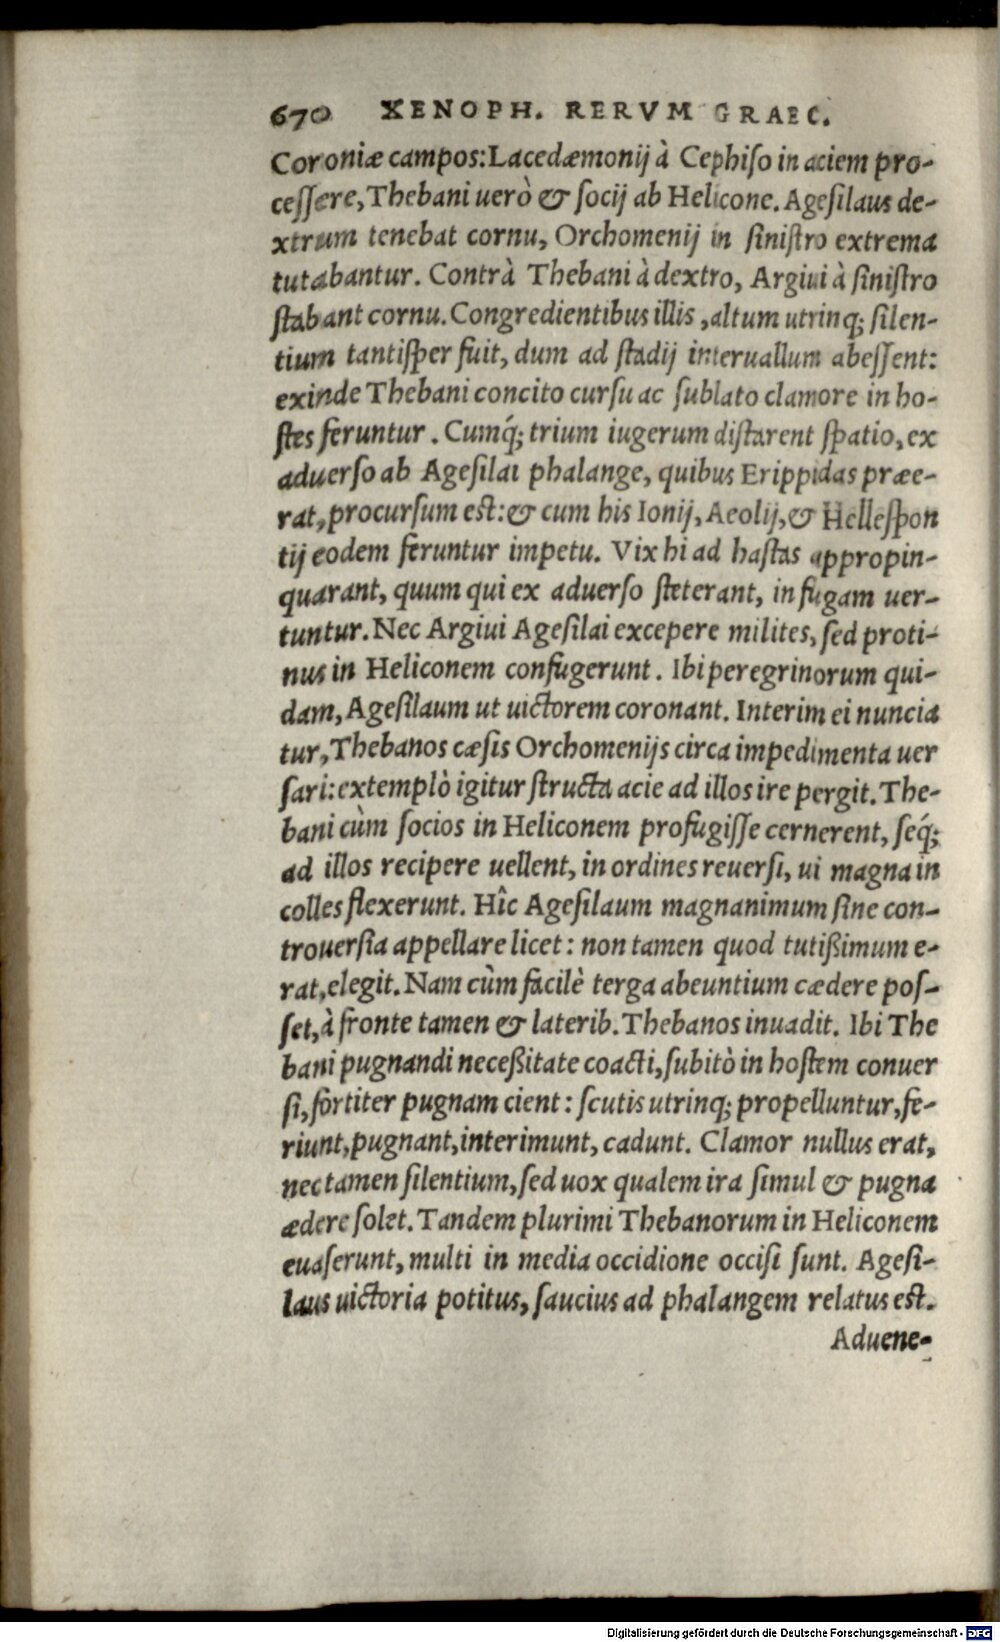 670 XENOPH. RERVM GRAEC.
Coroniæ campos: Lacedæmonij à Cephiso in aciem pro-
cessere, Thebani uerò & socij ab Helicone. Agesilaus de-
xtrum tenebat cornu, Orchomenij in sinistro extrema
tutabantur. Contrà Thebani à dextro, Argiui à sinistro
stabant cornu. Congredientibus illis, altum utrinq; silen-
tium tantisper fuit, dum ad stadij interuallum abessent:
exinde Thebani concito cursu ac sublato clamore in ho-
stes feruntur. Cumq́; trium iugerum distarent spatio, ex
aduerso ab Agesilai phalange, quibus Erippidas præe-
rat, procursum est: & cum his Ionij, Aeolij, & Hellespon
tij eodem feruntur impetu. Vix hi ad hastas appropin-
quarant, quum qui ex aduerso steterant, in fugam uer-
tuntur. Nec Argiui Agesilai excepere milites, sed proti-
nus in Heliconem confugerunt. Ibi peregrinorum qui-
dam, Agesilaum ut uictorem coronant. Interim ei nuncia
tur, Thebanos cæsis Orchomenijs circa impedimenta uer
sari: extemplò igitur structa acie ad illos ire pergit. The-
bani cùm socios in Heliconem profugisse cernerent, seq́;
ad illos recipere uellent, in ordines reuersi, ui magna in
colles flexerunt. Hîc Agesilaum magnanimum sine con-
trouersia appellare licet: non tamen quod tutißimum e-
rat, elegit. Nam cùm facilè terga abeuntium cædere pos-
set, à fronte tamen & laterib. Thebanos inuadit. Ibi The
bani pugnandi neceßitate coacti, subitò in hostem conuer
si, fortiter pugnam cient: scutis utrinq; propelluntur, fe-
riunt, pugnant, interimunt, cadunt. Clamor nullus erat,
nec tamen silentium, sed uox qualem ira simul & pugna
ædere solet. Tandem plurimi Thebanorum in Heliconem
euaserunt, multi in media occidione occisi sunt. Agesi-
laus uictoria potitus, saucius ad phalangem relatus est.
Aduene-
Digitalisierung gefördert durch die Deutsche Forschungsgemeinschaft - DFG